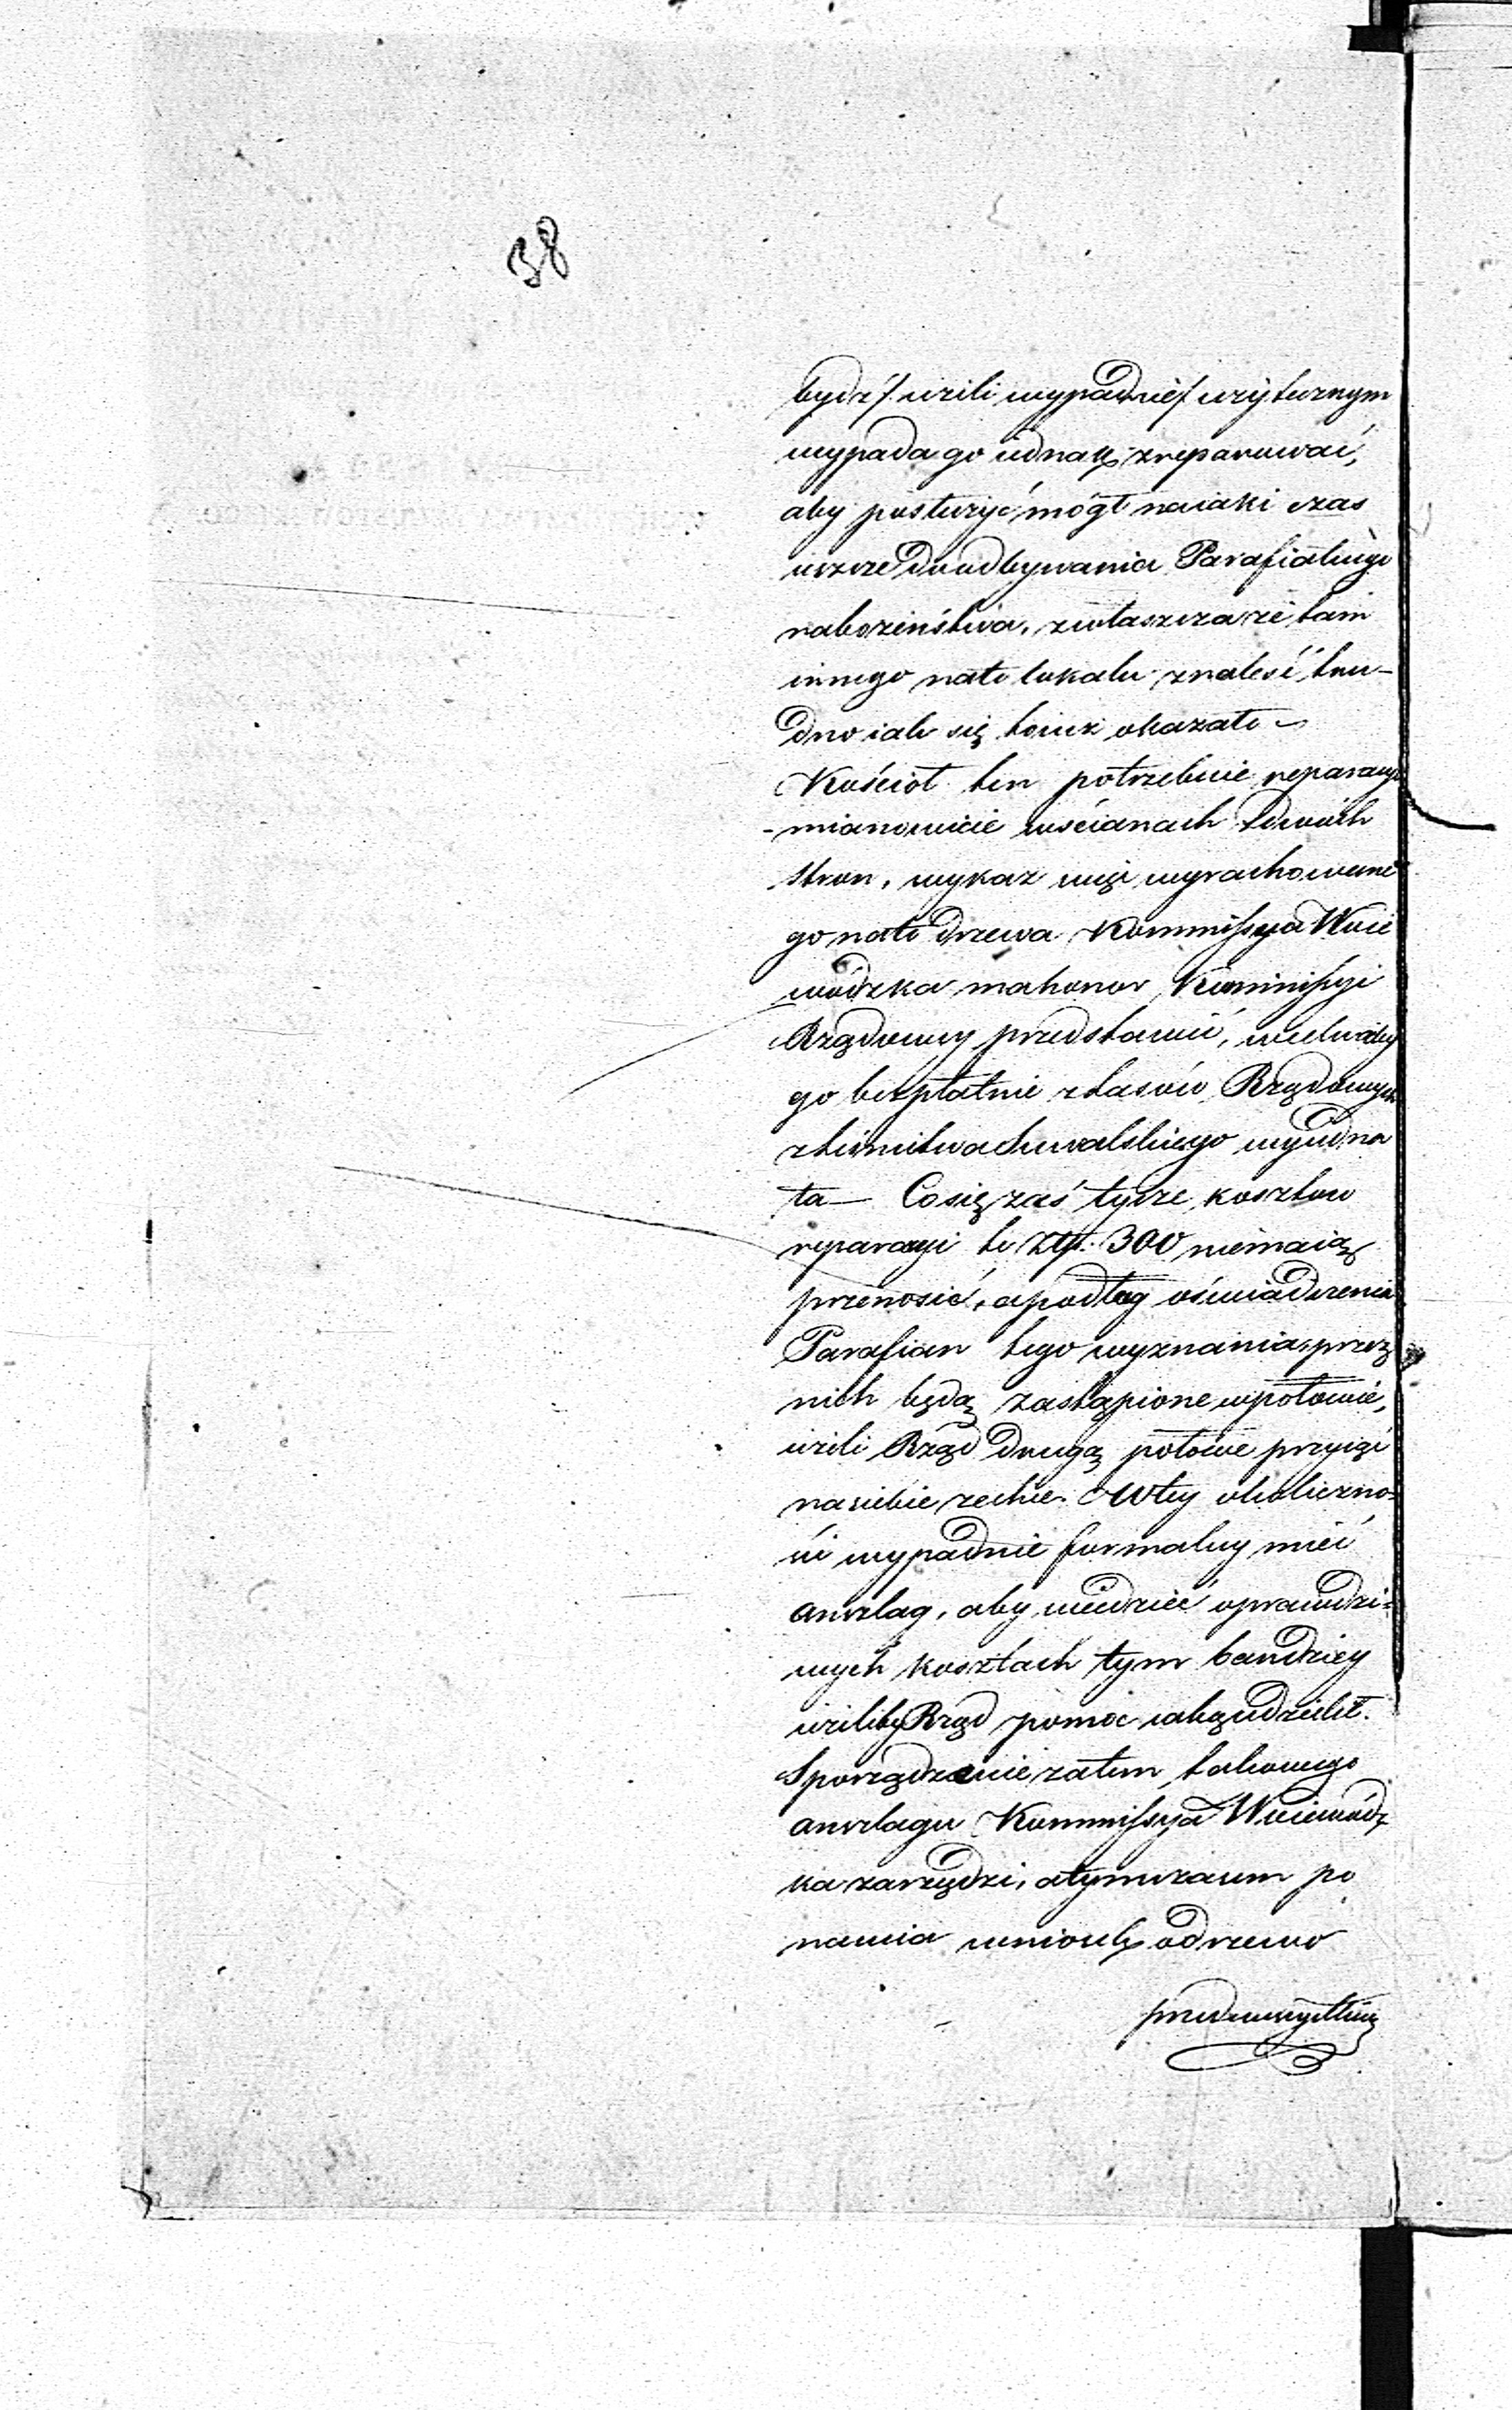 38
bydź /: ieżeli wypadnie :/ użytecznym
wypada go iednak zreparować,
aby posłużyć mógł na iaki czas
ieszcze do odbywania Parafialnego
nabożeństwa, zwłaszcza że tam
innego na to lokalu znaleść tru-
dno iak się to iuż okazało –
Kościoł ten potrzebuie reparacyi
- mianowicie w ścianach z dwóch
stron, wykaz więc wyrachowane
go na to drzewa Kommissya Woie
wódzka ma honor Kommissyi
Rządowey przedstawić, w celu aby
go bezpłatnie z lasów Rządowych
z leśnictwa Suwalskiego wyiedna
ła — Co się zaś tycze kosztow
reparacyi te Złp. 300 niemaią
przenosić, a podług oświadczenia
Parafian tego wyznania, przez
nich będą zastąpione w połowie,
ieżeli Rząd drugą połowe przyiąć
na siebie zechce. W tey okoliczno-
ści wypadnie formalny mieć
anszlag, aby wiedzieć o prawdzi-
wych kosztach tym bardziey
ieżeliby Rząd pomoc iaką udzielił.
Sporządzenie zatem takowego
anszlagu Kommissya Woiewódz
ka zarządzi, a tymczasem po
nawia wniosek o drzewo